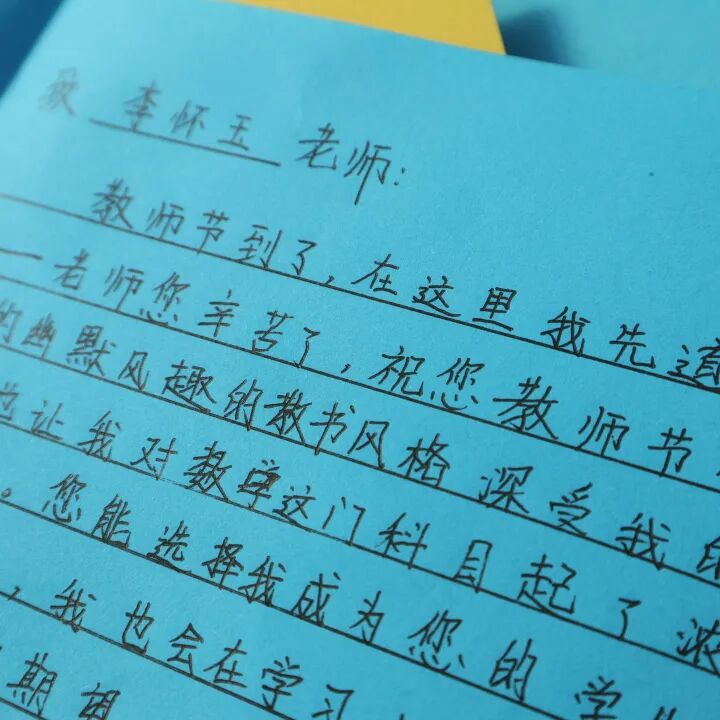 致 李怀玉 老师:
教师节到了,在这里我先道
一老师您辛苦了,祝您教师节
的幽默风趣的教书风格深受我的
也让我对数学这门科目起了浓
。您能选择我成为您的学生
,我也会在学习
期望